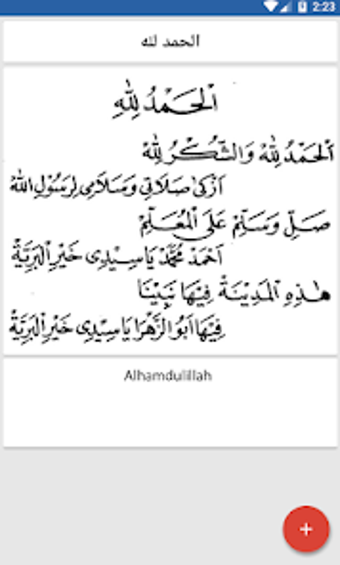 2:23
الحمد لله
اَلْحَمْدُ لِلّٰهِ
اَلْحَمْدُ لِلّٰهْ وَالشُّكْرُ لِلّٰهْ
اَزْكٰى صَلَاتِى وَسَلَامِى لِرَسُوْلِ اللهْ
صَلِّ وَسَلِّمْ عَلَى الْمُعَلِّمْ
اَحْمَدْ مُحَمَّدْ يَاسِيْدِى خَيْرِ الْبَرِيَّةْ
هٰذِهِ الْمَدِيْنَةْ فِيْهَا نَبِيْنَا
فِيْهَا اَبُو الزَّهْرَا يَاسِيْدِى خَيْرِ الْبَرِيَّةْ
Alhamdulillah
+